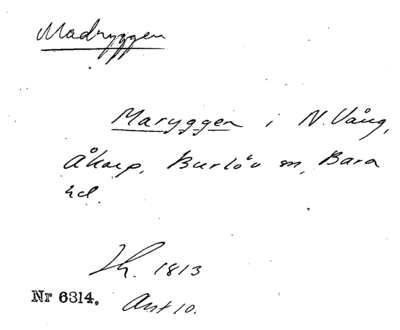 Madryggen
Maryggen i N. Vång,
Åkarp, Burlöv sn, Bara
hd.
Lh. 1813
Nr 6314. Ant 10.